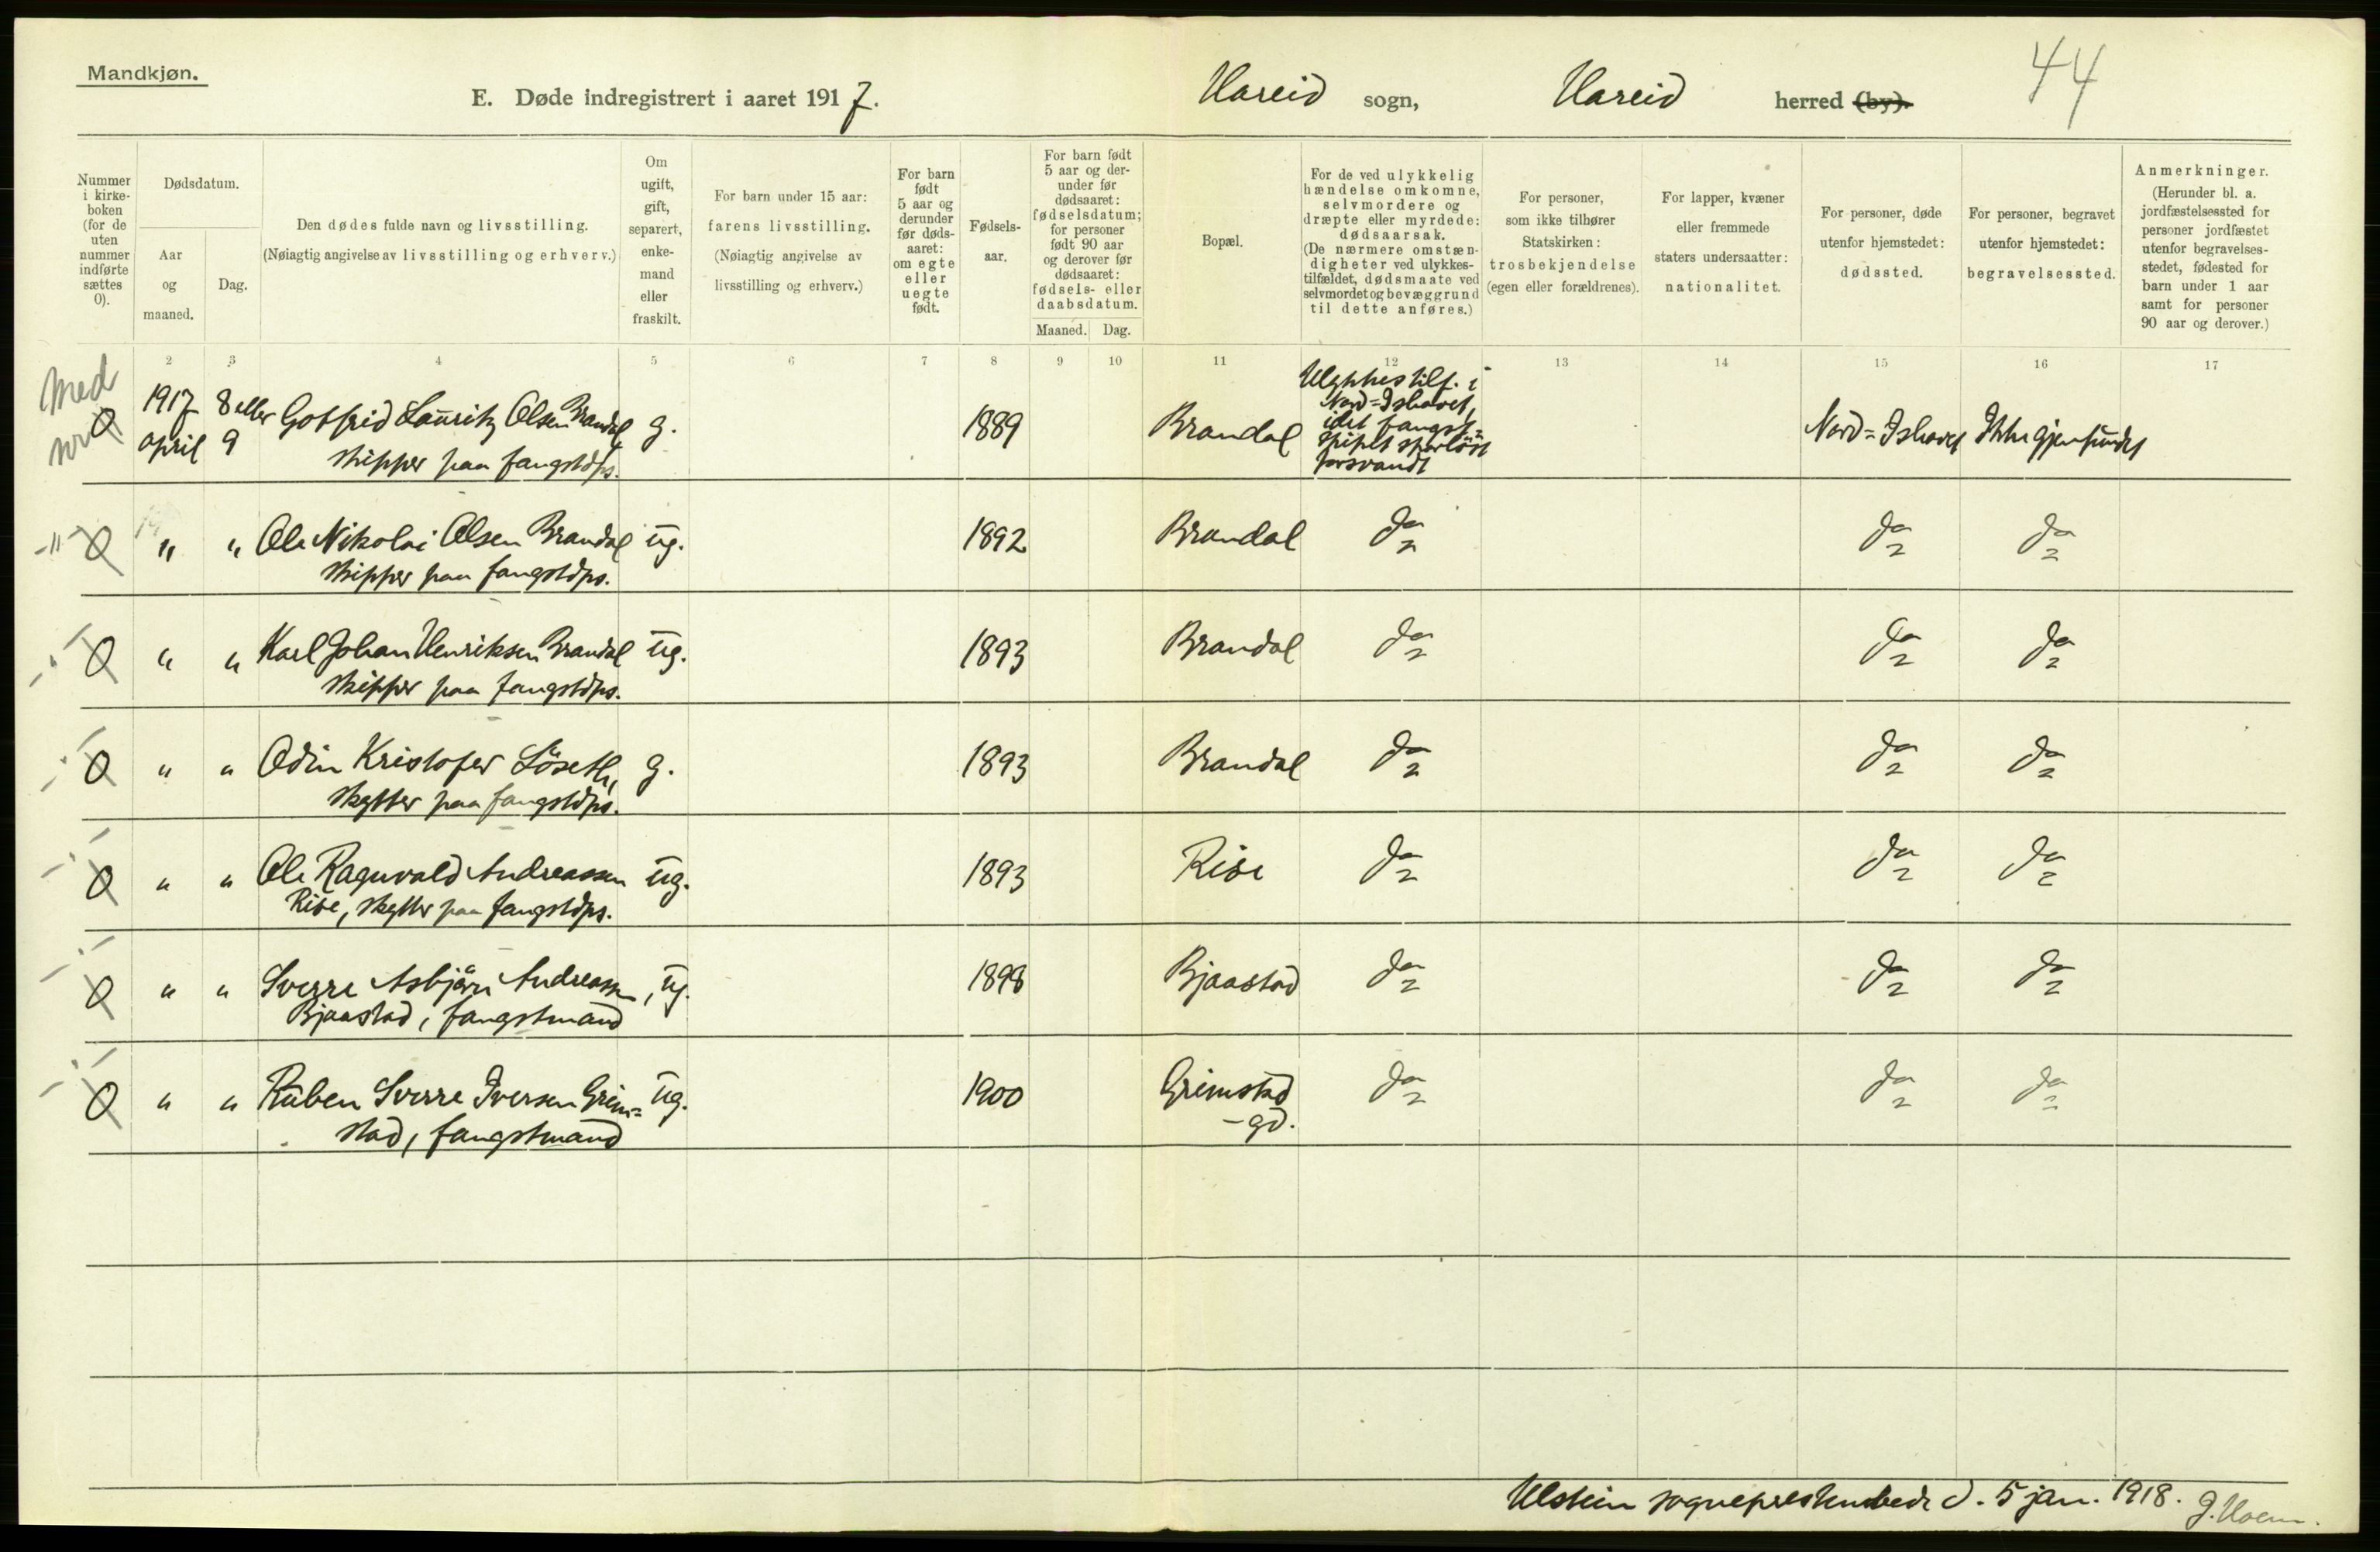 Mandkjøn.
E. Døde indregistrert i aaret 1917.
Hareid sogn, Hareid herred (by).
44
Nummer i kirke-boken (for de uten nummer indførte sættes 0).
Dødsdatum.
Aar og maaned.
Dag.
Den dødes fulde navn og livsstilling.
(Nøiagtig angivelse av livsstilling og erhverv.)
Om ugift, gift, separert, enke-mand eller fraskilt.
For barn under 15 aar:
farens livsstilling.
(Nøiagtig angivelse av livsstilling og erhverv.)
For barn født 5 aar og derunder før døds-aaret: om egte eller uegte født.
Fødsels-aar.
For barn født 5 aar og der-under før dødsaaret: fødselsdatum; for personer født 90 aar og derover før dødsaaret: fødsels- eller daabsdatum.
Maaned. Dag.
Bopæl.
For de ved ulykkelig hændelse omkomne, selvmordere og dræpte eller myrdede: dødsaarsak.
(De nærmere omstæn-digheter ved ulykkes-tilfældet, dødsmaate ved selvmordet og bevæggrund til dette anføres.)
For personer, som ikke tilhører Statskirken: trosbekjendelse (egen eller forældrenes).
For lapper, kvæner eller fremmede staters undersaatter: nationalitet.
For personer, døde utenfor hjemstedet: dødssted.
For personer, begravet utenfor hjemstedet: begravelsessted.
Anmerkninger.
(Herunder bl. a. jordfæstelsessted for personer jordfæstet utenfor begravelses-stedet, fødested for barn under 1 aar samt for personer 90 aar og derover.)
2 3 4 5 6 7 8 9 10 11 12 13 14 15 16 17
Med
0 1917 april 8 eller 9 Gotfrid Lauritz Olsen Brandal, g. 1889 Brandal Ulykkestilf. i Nord=Ishavet, idet fangst= skipet sporløst forsvandt Nord=Ishavet Ikke gjenfundet
skipper paa fangstsk.
-"- 0 " " Ole Nikolai Olsen Brandal ug. 1892 Brandal Do Do Do
skipper paa fangstsk.
0 " " Karl Johan Henriksen Brandal ug. 1893 Brandal Do Do Do
skipper paa fangstsk.
0 " " Odin Kristofer Løseth, g. 1893 Brandal Do Do Do
skytter paa fangstsk.
0 " " Ole Ragnvald Andreassen ug. 1893 Rise Do Do Do
Rise, skytter paa fangstsk.
0 " " Sverre Asbjørn Andreassen, ug. 1898 Bjaastad Do Do Do
Bjaastad, fangstmand
0 " " Ruben Sverre Iversen Grim= ug. 1900 Grimstad Do Do Do
stad, fangstmand -gd.
Ulstein sogneprestembede d. 5 jan. 1918.